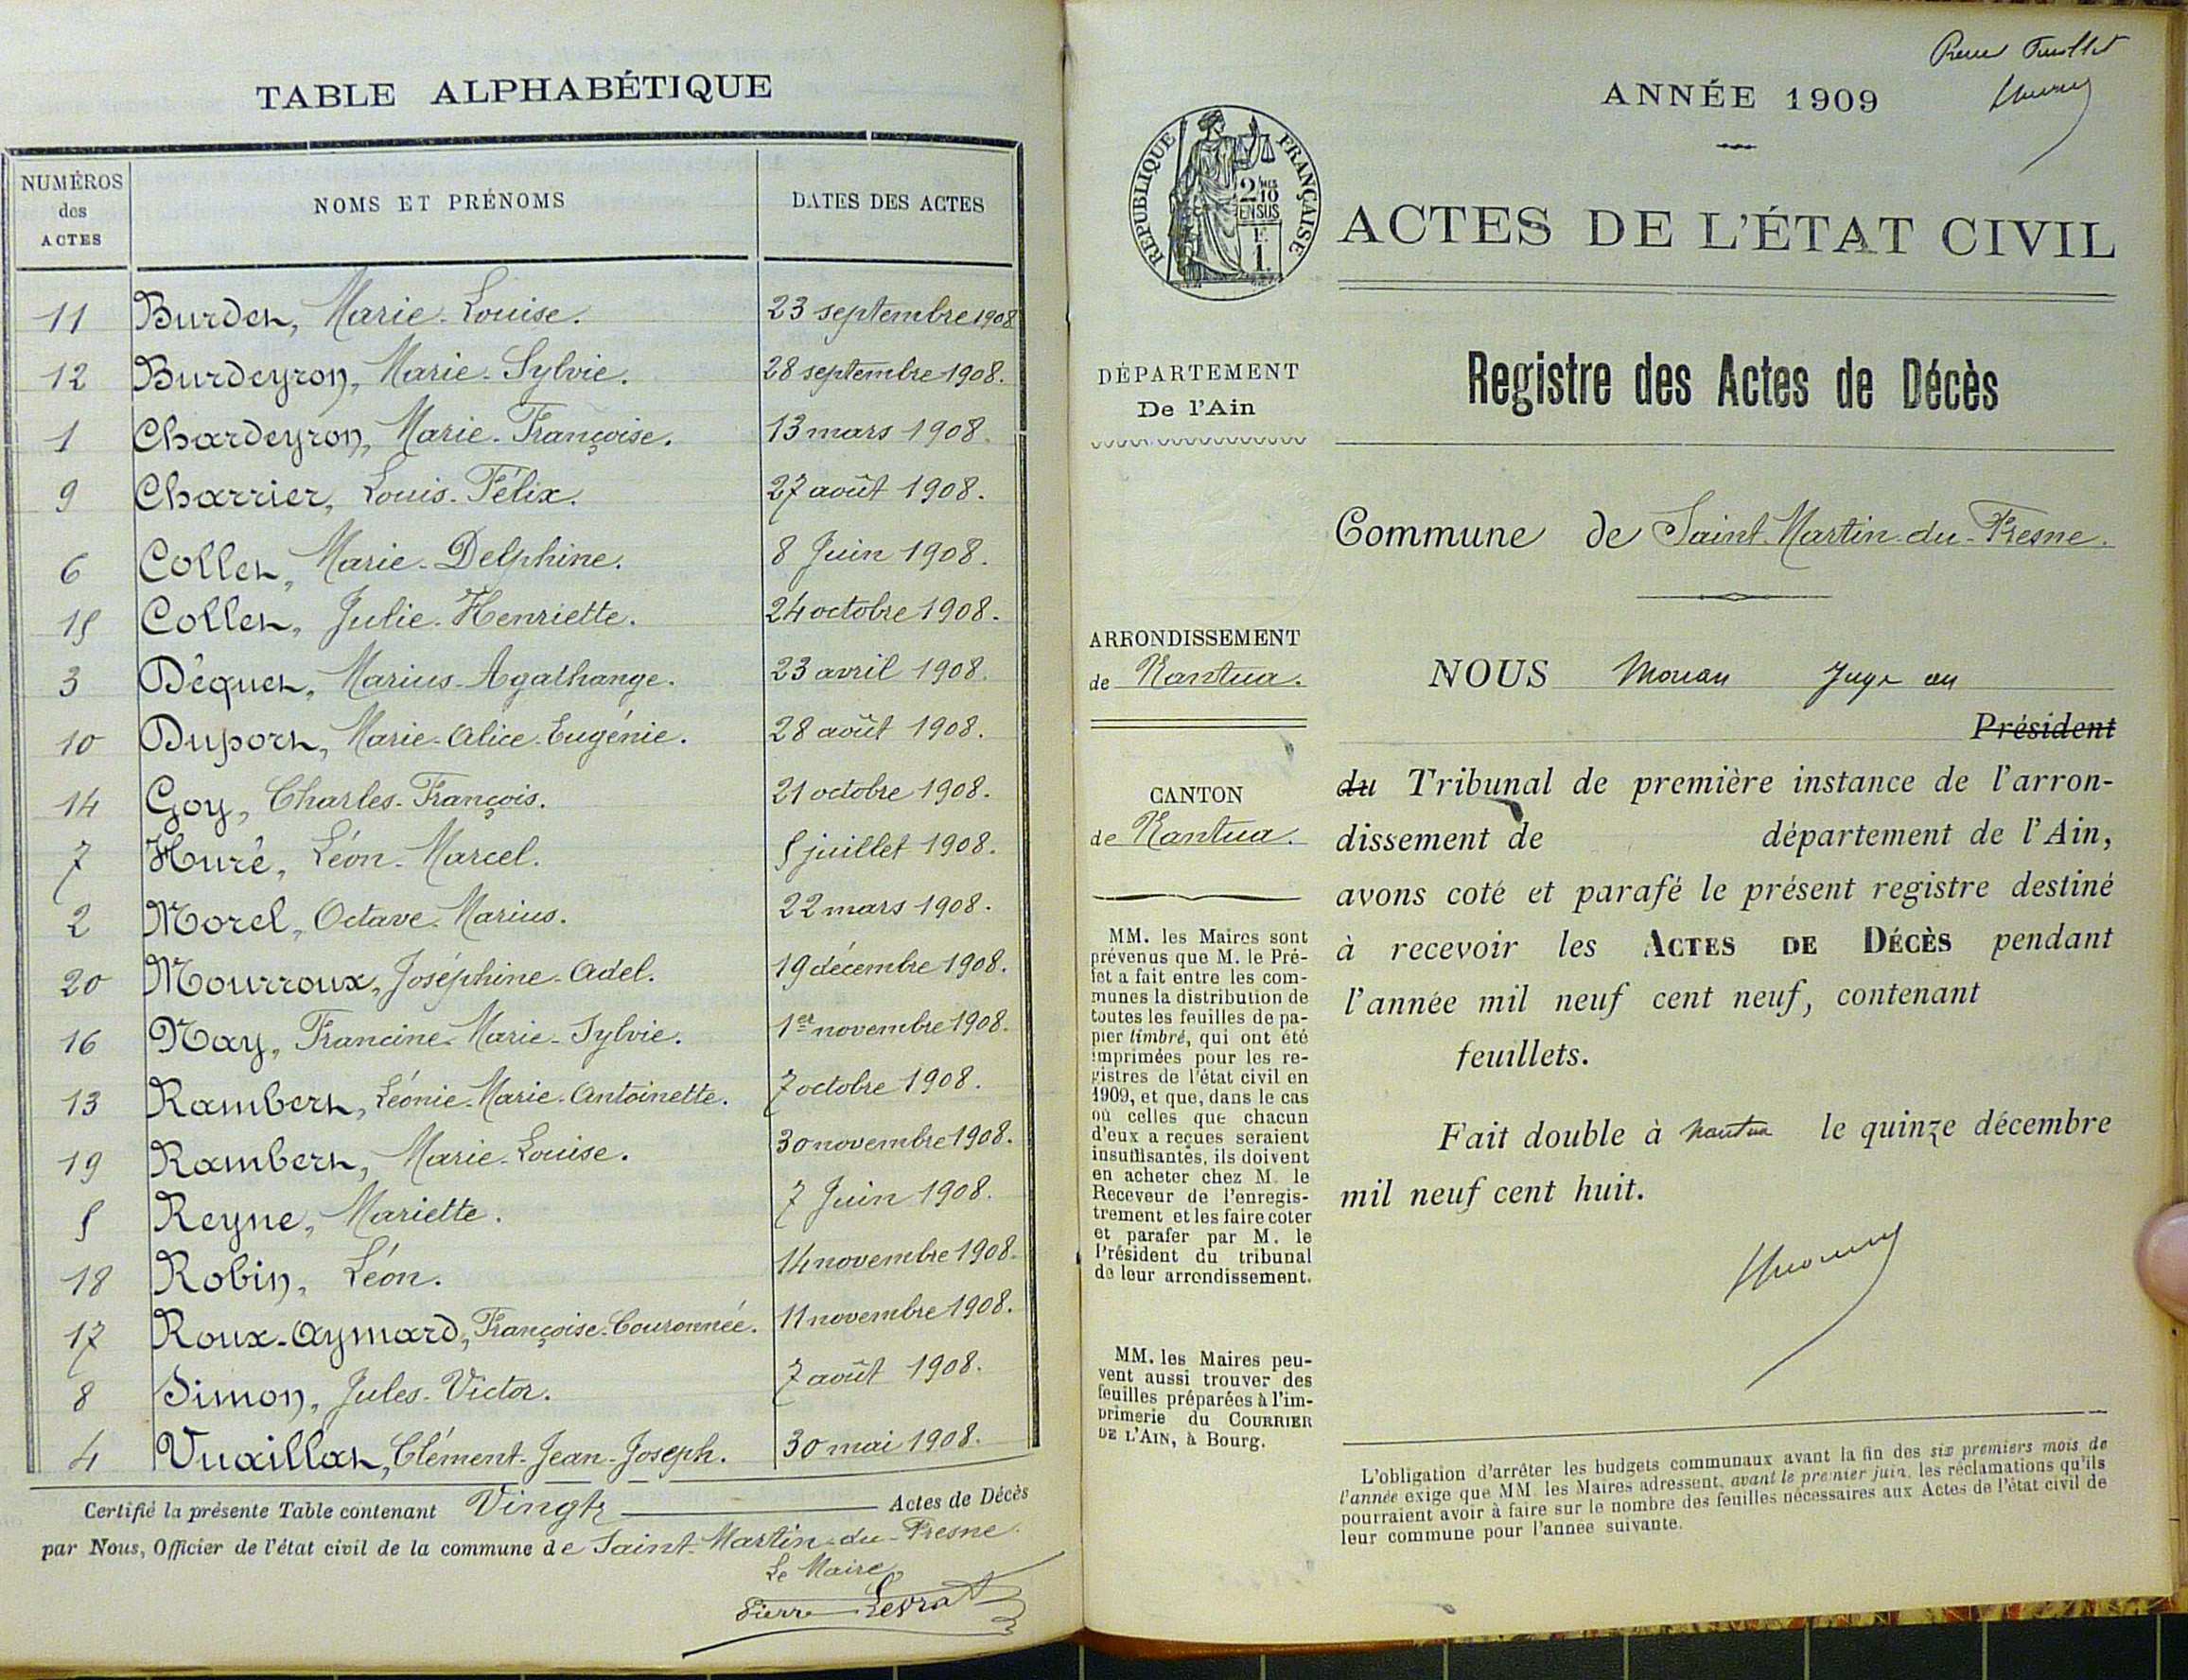 TABLE ALPHABÉTIQUE
NUMÉROS des ACTES
NOMS ET PRÉNOMS
DATES DES ACTES
11 Burdet, Marie-Louise. 23 septembre 1908
12 Burdeyron, Marie-Sylvie. 28 septembre 1908.
1 Chardeyron, Marie-Françoise. 13 mars 1908.
9 Charrier, Louis-Félix. 27 août 1908.
6 Collet, Marie-Delphine. 8 Juin 1908.
15 Collet, Julie-Henriette. 24 octobre 1908.
3 Déquet, Marius-Agathange. 23 avril 1908.
10 Duport, Marie-Alice-Eugénie. 28 août 1908.
14 Goy, Charles-François. 21 octobre 1908.
7 Huré, Léon-Marcel. 5 juillet 1908.
2 Morel, Octave-Marius. 22 mars 1908.
20 Mourroux, Joséphine-Adel. 19 décembre 1908.
16 Nay, Francine-Marie-Sylvie. 1er novembre 1908.
13 Rambert, Léonie-Marie-Antoinette. 7 octobre 1908.
19 Rambert, Marie-Louise. 30 novembre 1908.
5 Reyne, Mariette. 7 Juin 1908.
18 Robin, Léon. 14 novembre 1908.
17 Roux-Aymard, Françoise-Couronnée. 11 novembre 1908.
8 Simon, Jules-Victor. 7 août 1908.
4 Vuaillat, Clément-Jean-Joseph. 30 mai 1908.
Certifié la présente Table contenant Vingt Actes de Décès
par Nous, Officier de l'état civil de la commune de Saint-Martin-du-Fresne.
Le Maire,
Pierre Levrat
ANNÉE 1909
RÉPUBLIQUE FRANÇAISE
2 MES 10
EN SUS
1F.
1.
ACTES DE L'ÉTAT CIVIL
DÉPARTEMENT
De l'Ain
Registre des Actes de Décès
Commune de Saint-Martin-du-Fresne.
ARRONDISSEMENT
de Nantua.
CANTON
de Nantua.
MM. les Maires sont
prévenus que M. le Pré-
fet a fait entre les com-
munes la distribution de
toutes les feuilles de pa-
pier timbré, qui ont été
imprimées pour les re-
gistres de l'état civil en
1909, et que, dans le cas
où celles que chacun
d'eux a reçues seraient
insuffisantes, ils doivent
en acheter chez M. le
Receveur de l'enregis-
trement et les faire coter
et parafer par M. le
Président du tribunal
de leur arrondissement.
MM. les Maires peu-
vent aussi trouver des
feuilles préparées à l'im-
primerie du COURRIER
DE L'AIN, à Bourg.
NOUS Juge au
Président
du Tribunal de première instance de l'arron-
dissement de département de l'Ain,
avons coté et parafé le présent registre destiné
à recevoir les ACTES DE DÉCÈS pendant
l'année mil neuf cent neuf, contenant
feuillets.
Fait double à Nantua le quinze décembre
mil neuf cent huit.
L'obligation d'arrêter les budgets communaux avant la fin des six premiers mois de
l'année exige que MM. les Maires adressent, avant le premier juin, les réclamations qu'ils
pourraient avoir à faire sur le nombre des feuilles nécessaires aux Actes de l'état civil de
leur commune pour l'année suivante.